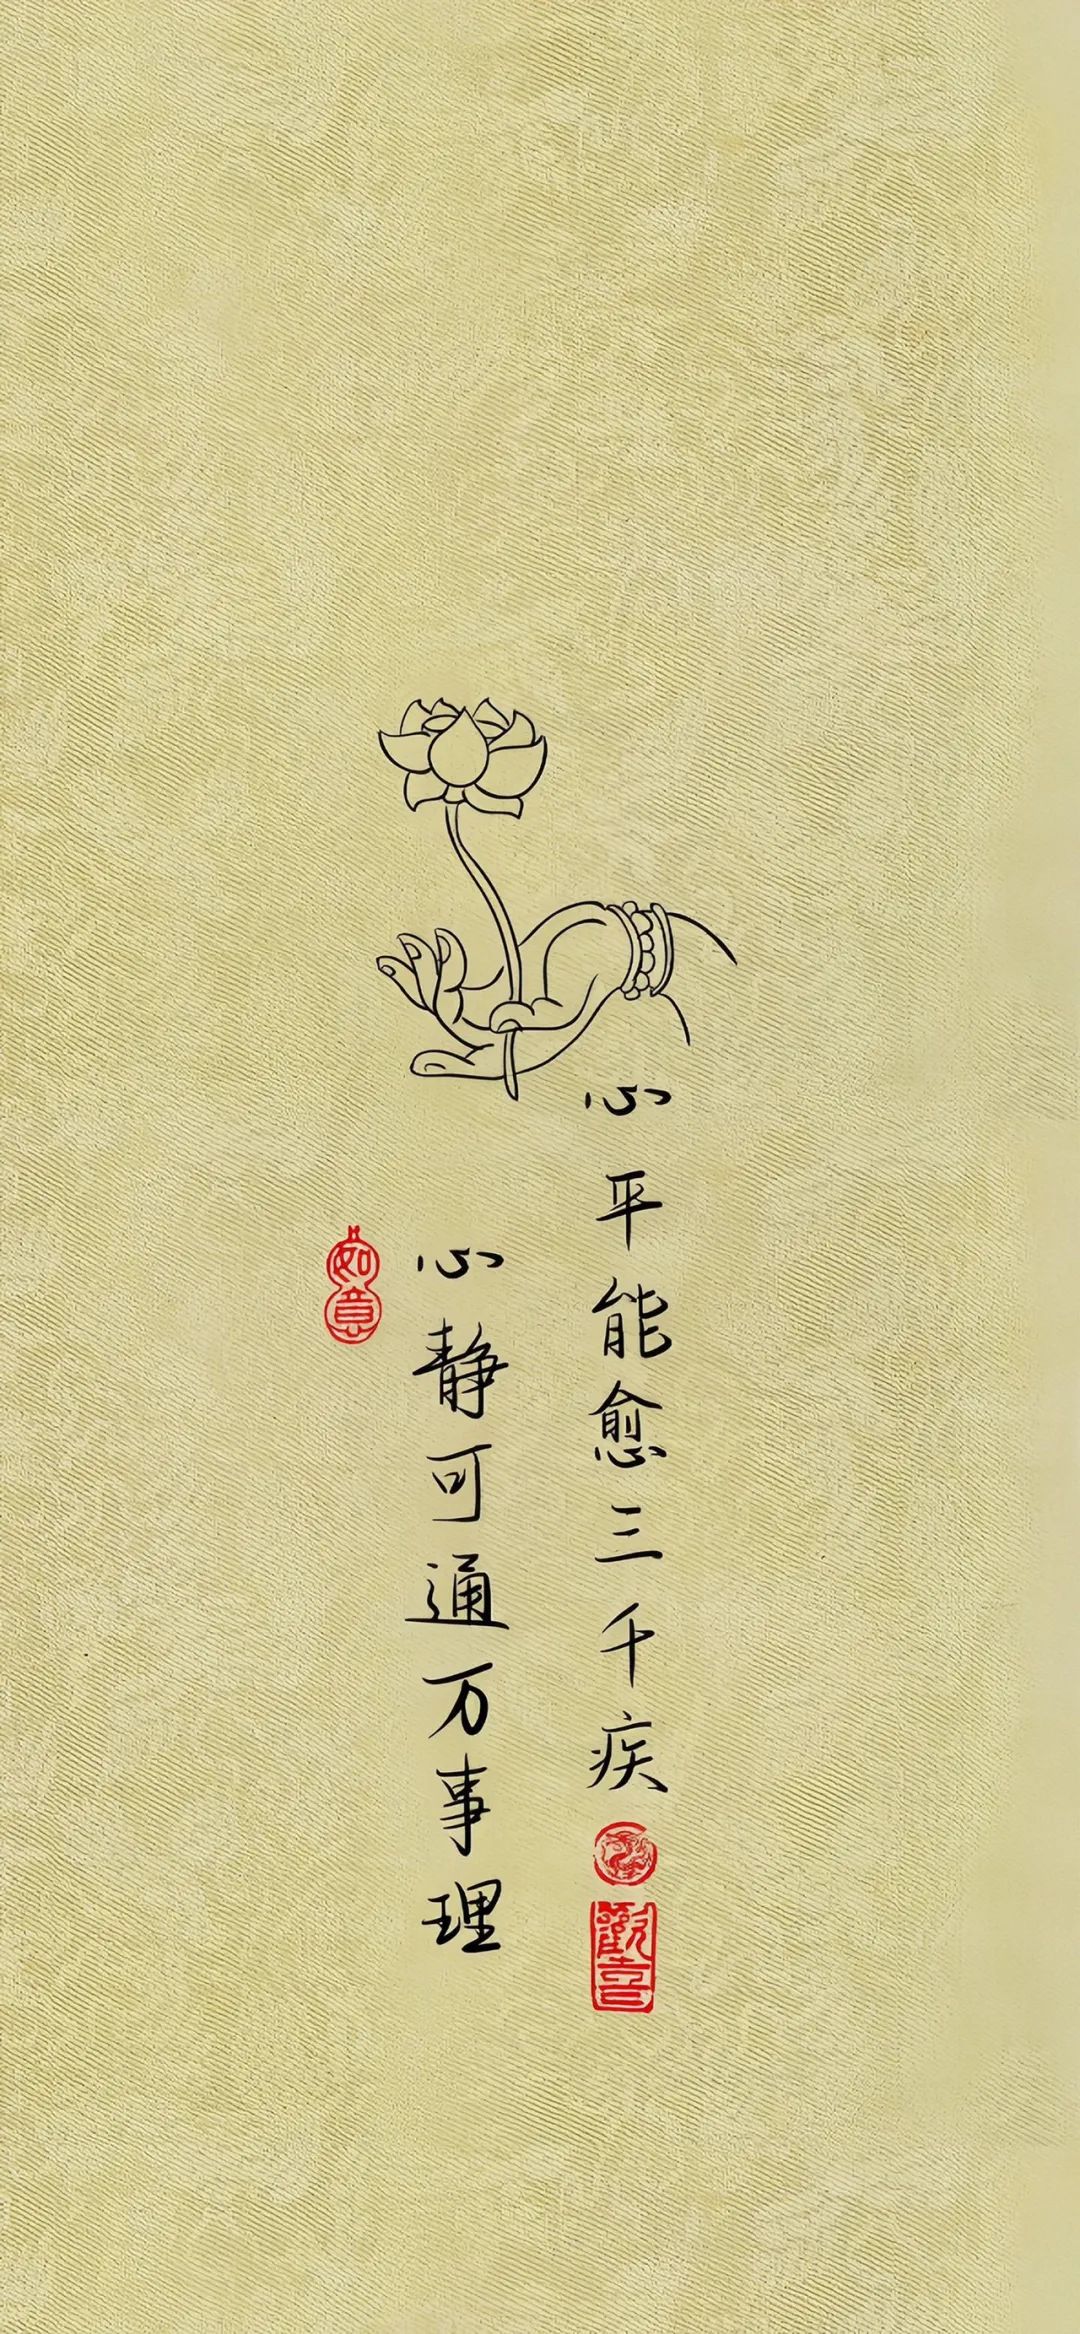 心平能愈三千疾
心静可通万事理
如意